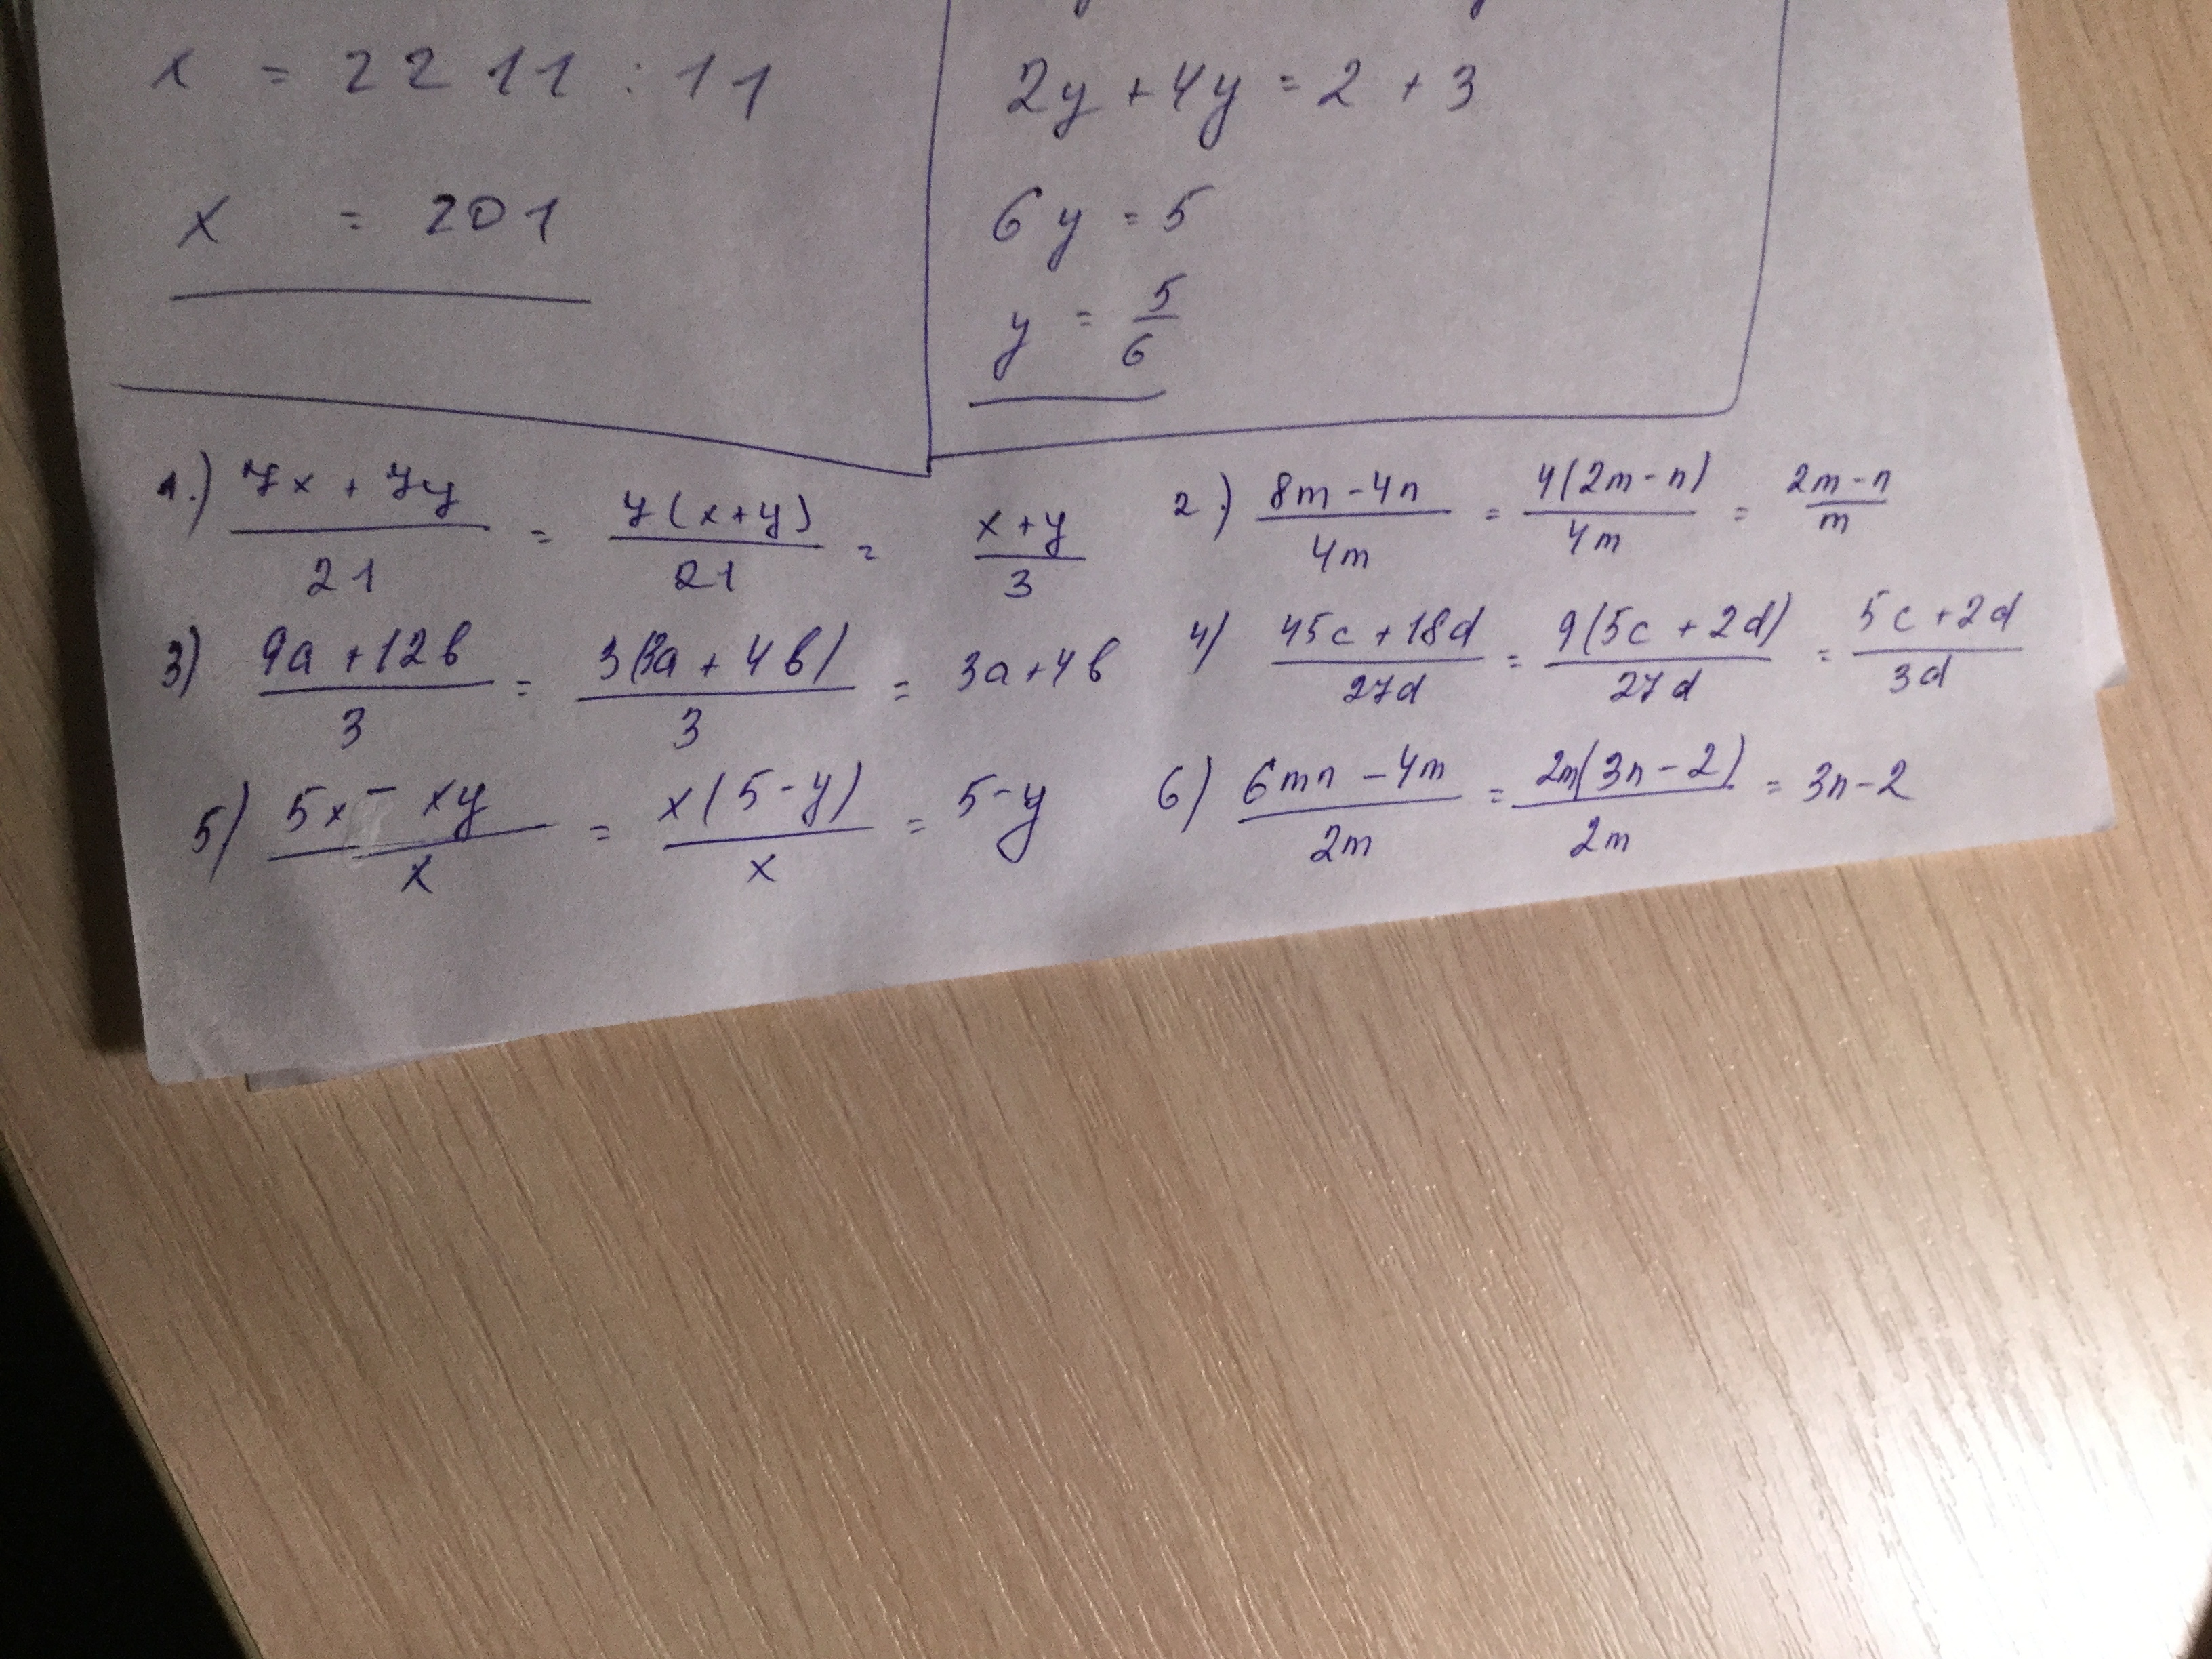 x = 2211 : 11
x = 201
2y + 4y = 2 + 3
6y = 5
y = 5/6
1.) (7x + 7y)/21 = 7(x+y)/21 = (x+y)/3
2.) (8m - 4n)/4m = 4(2m-n)/4m = (2m-n)/m
3) (9a + 12b)/3 = 3(3a + 4b)/3 = 3a+4b
4) (45c + 18d)/27d = 9(5c + 2d)/27d = (5c + 2d)/3d
5) (5x - xy)/x = x(5-y)/x = 5-y
6) (6mn - 4m)/2m = 2m(3n-2)/2m = 3n-2